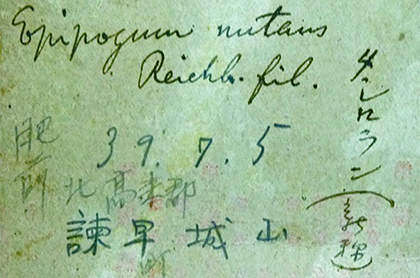 Epipogum nutans
Reichb. fil.
タシロラン(新種)
39.7.5
肥前
北高来郡
諫早城山
町